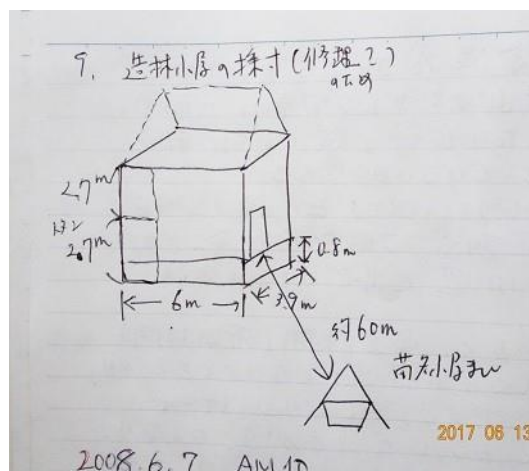 9. 造林小屋の採寸(修理?)
のため
2.7m
2.7m
0.8m
6m
3.9m
約60m
苗名小屋まで
2017 06 13
2008.6.7 AM10